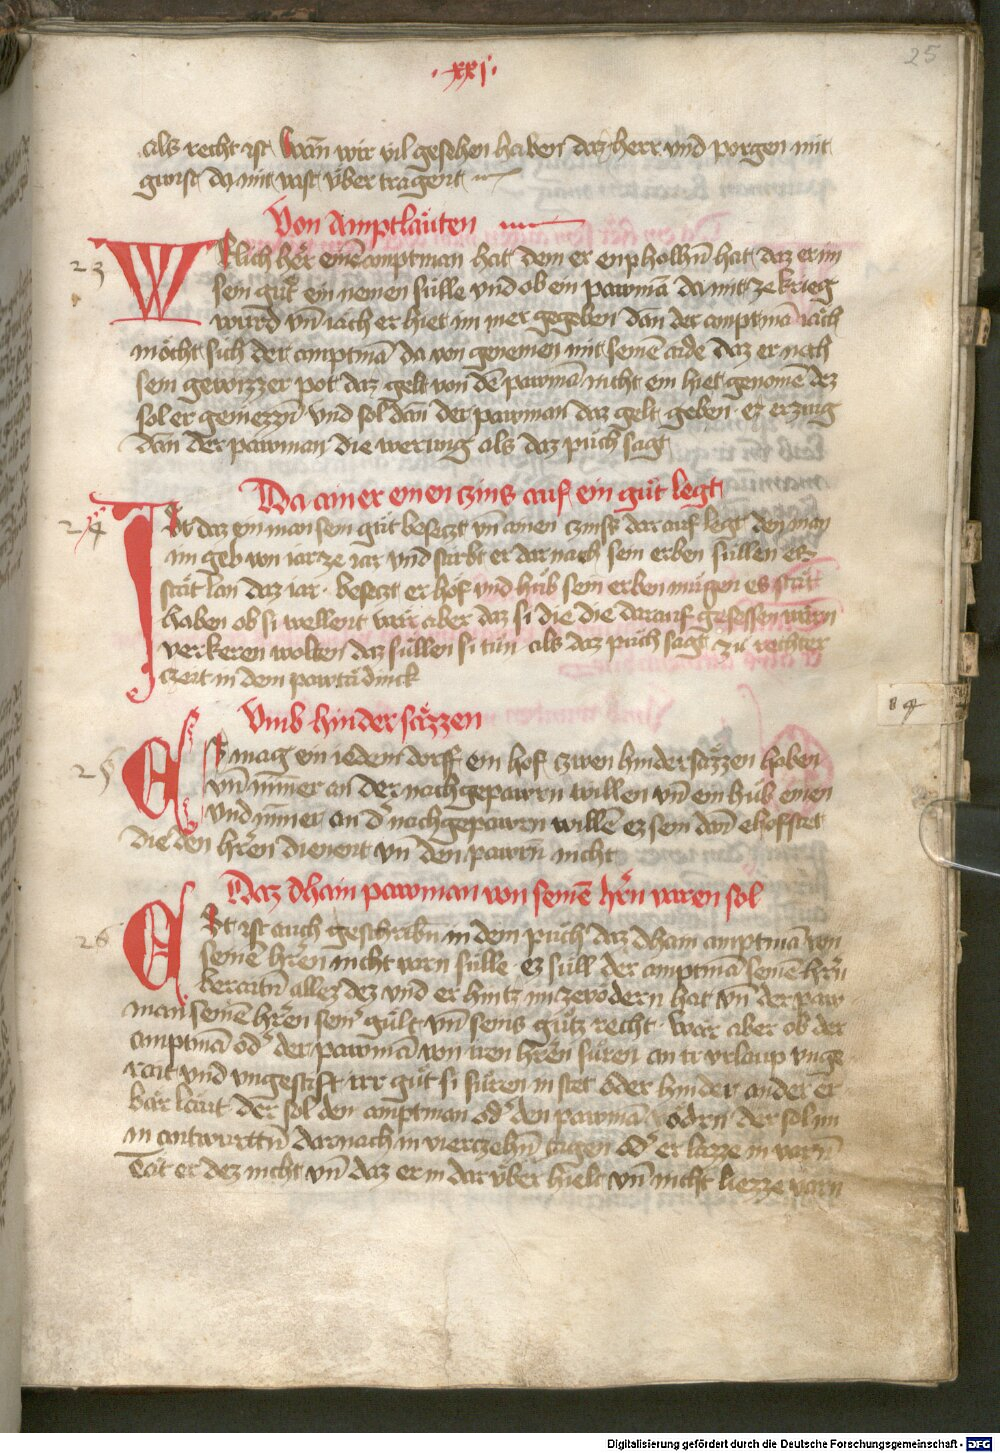 ·xxj·
25
als recht ist Wan̄ wir vil gesehen haben daz herr vnd porgen mit
gunst da mit vast über tragent
Von Amptläuten
23
WElich her̄ einē amptman hat dem er enpholhn̄ hat daz er im
sein gült ein nemen sülle vnd ob ein pawmā da mit ze krieg
wurd vn̄ iäch er hiet im mer gegeben dan der amptmā iäch
möcht sich der amptmā da von genemen mit seinē aide daz er nach
sein gewizzer pot daz gelt von dē pawmā nicht ein hiet genomē dez
sol er geniezzn̄ vnd sol dan̄ der pawman daz gelt geben · ez erzug
dan̄ der pawman die werung als daz puch sagt
Da ainer einen czins auf ein gut legt
24
ISt daz ein man sein gut besetzt vn̄ ainen czinss dar auf legt den man
im geb von iar ze iar vnd stirbt er dar nach sein erben süllen ez
stät lan daz iar · besetzt er höf vnd hüb sein erben mügen es stät
haben ob si wellent wär aber daz si die die darauf gesessen wärn
verkeren wolten daz süllen si tün als daz puch sagt zu rechter
czeit in dem pawtädinck
Vmb hindersäzzen
14
25
ES mag ein iedem dorff ein hof czwen hindersäzzen haben
vn̄ nimer an der nachgepawrn willen vn̄ ein hüb einen
vnd nimer an d' nachgepawrn willē ez sein dan̄ ehofstet
die den hr̄en dienent vn̄ den pawrn̄ nicht
Daz dhain pawman von seinē hr̄n varen sol
26
EZ ist auch geschribn̄ in dem puch daz dhain amptmā von
seinē hr̄en nicht varn sülle · ez süll der amptmā seinē hr̄n
beraitn̄ allez dez vnd er hintz im ze vödern hat vn̄ der paw
man seinē hr̄en sein' gült vn̄ seins gutz recht · Wär aber ob der
amptmā od' der pawmā von iren hr̄en füren an ir vrlaup vnge
rait vnd vngestift irr gut si füren in stet oder hinder ander er
bär läut der sol den amptman od' den pawmā vödrn der sol im
in antwurttn̄ darnach in vierczehn̄ tagen od' er lazze in varn̄
Tät er dez nicht vn̄ daz er in dar über hielt vn̄ nicht liezze varn
Digitalisierung gefördert durch die Deutsche Forschungsgemeinschaft - DFG